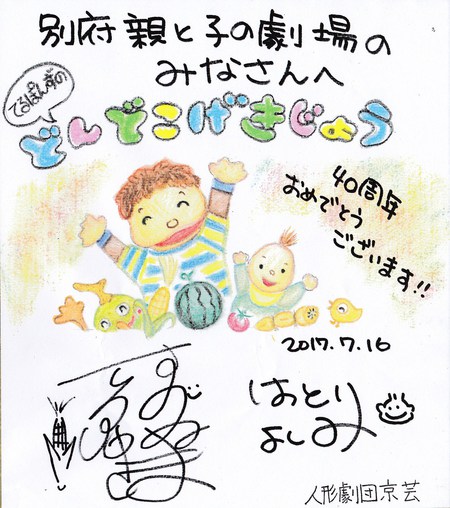 別府親と子の劇場の
みなさんへ
どんでこげきじょう
40周年
おめでとう
ございます!!
2017.7.16
はとり
よしみ
人形劇団京芸